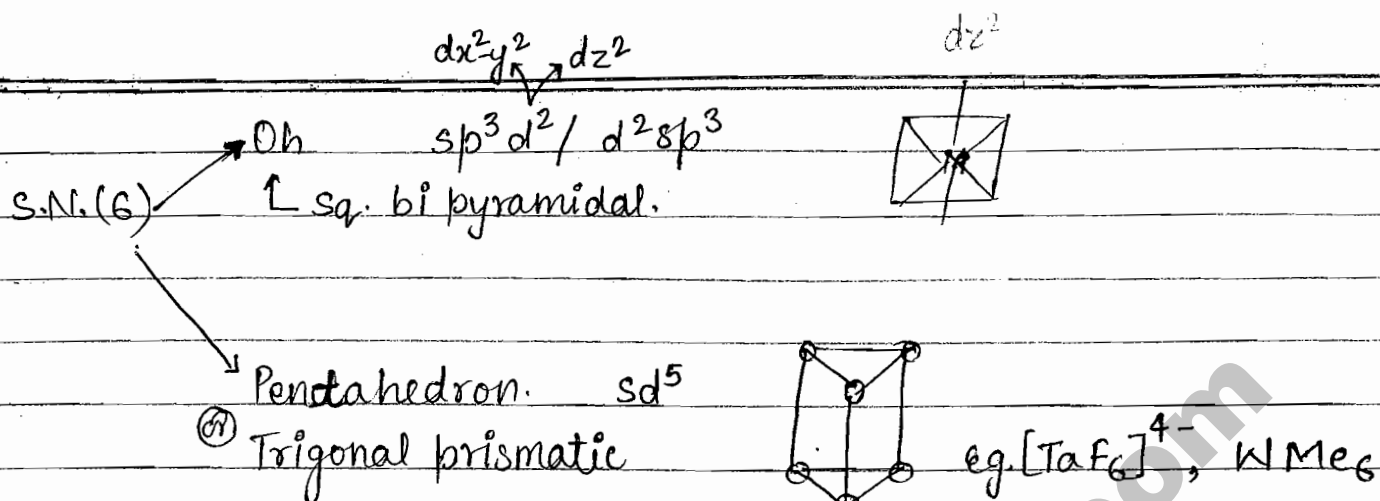 dx²-y² dz² dz²
Oh sp³d² / d²sp³ M
S.N.(6) Sq. bi pyramidal.
Pentahedron. sd⁵
or Trigonal prismatic eg. [TaF₆]⁴⁻, WMe₆
om